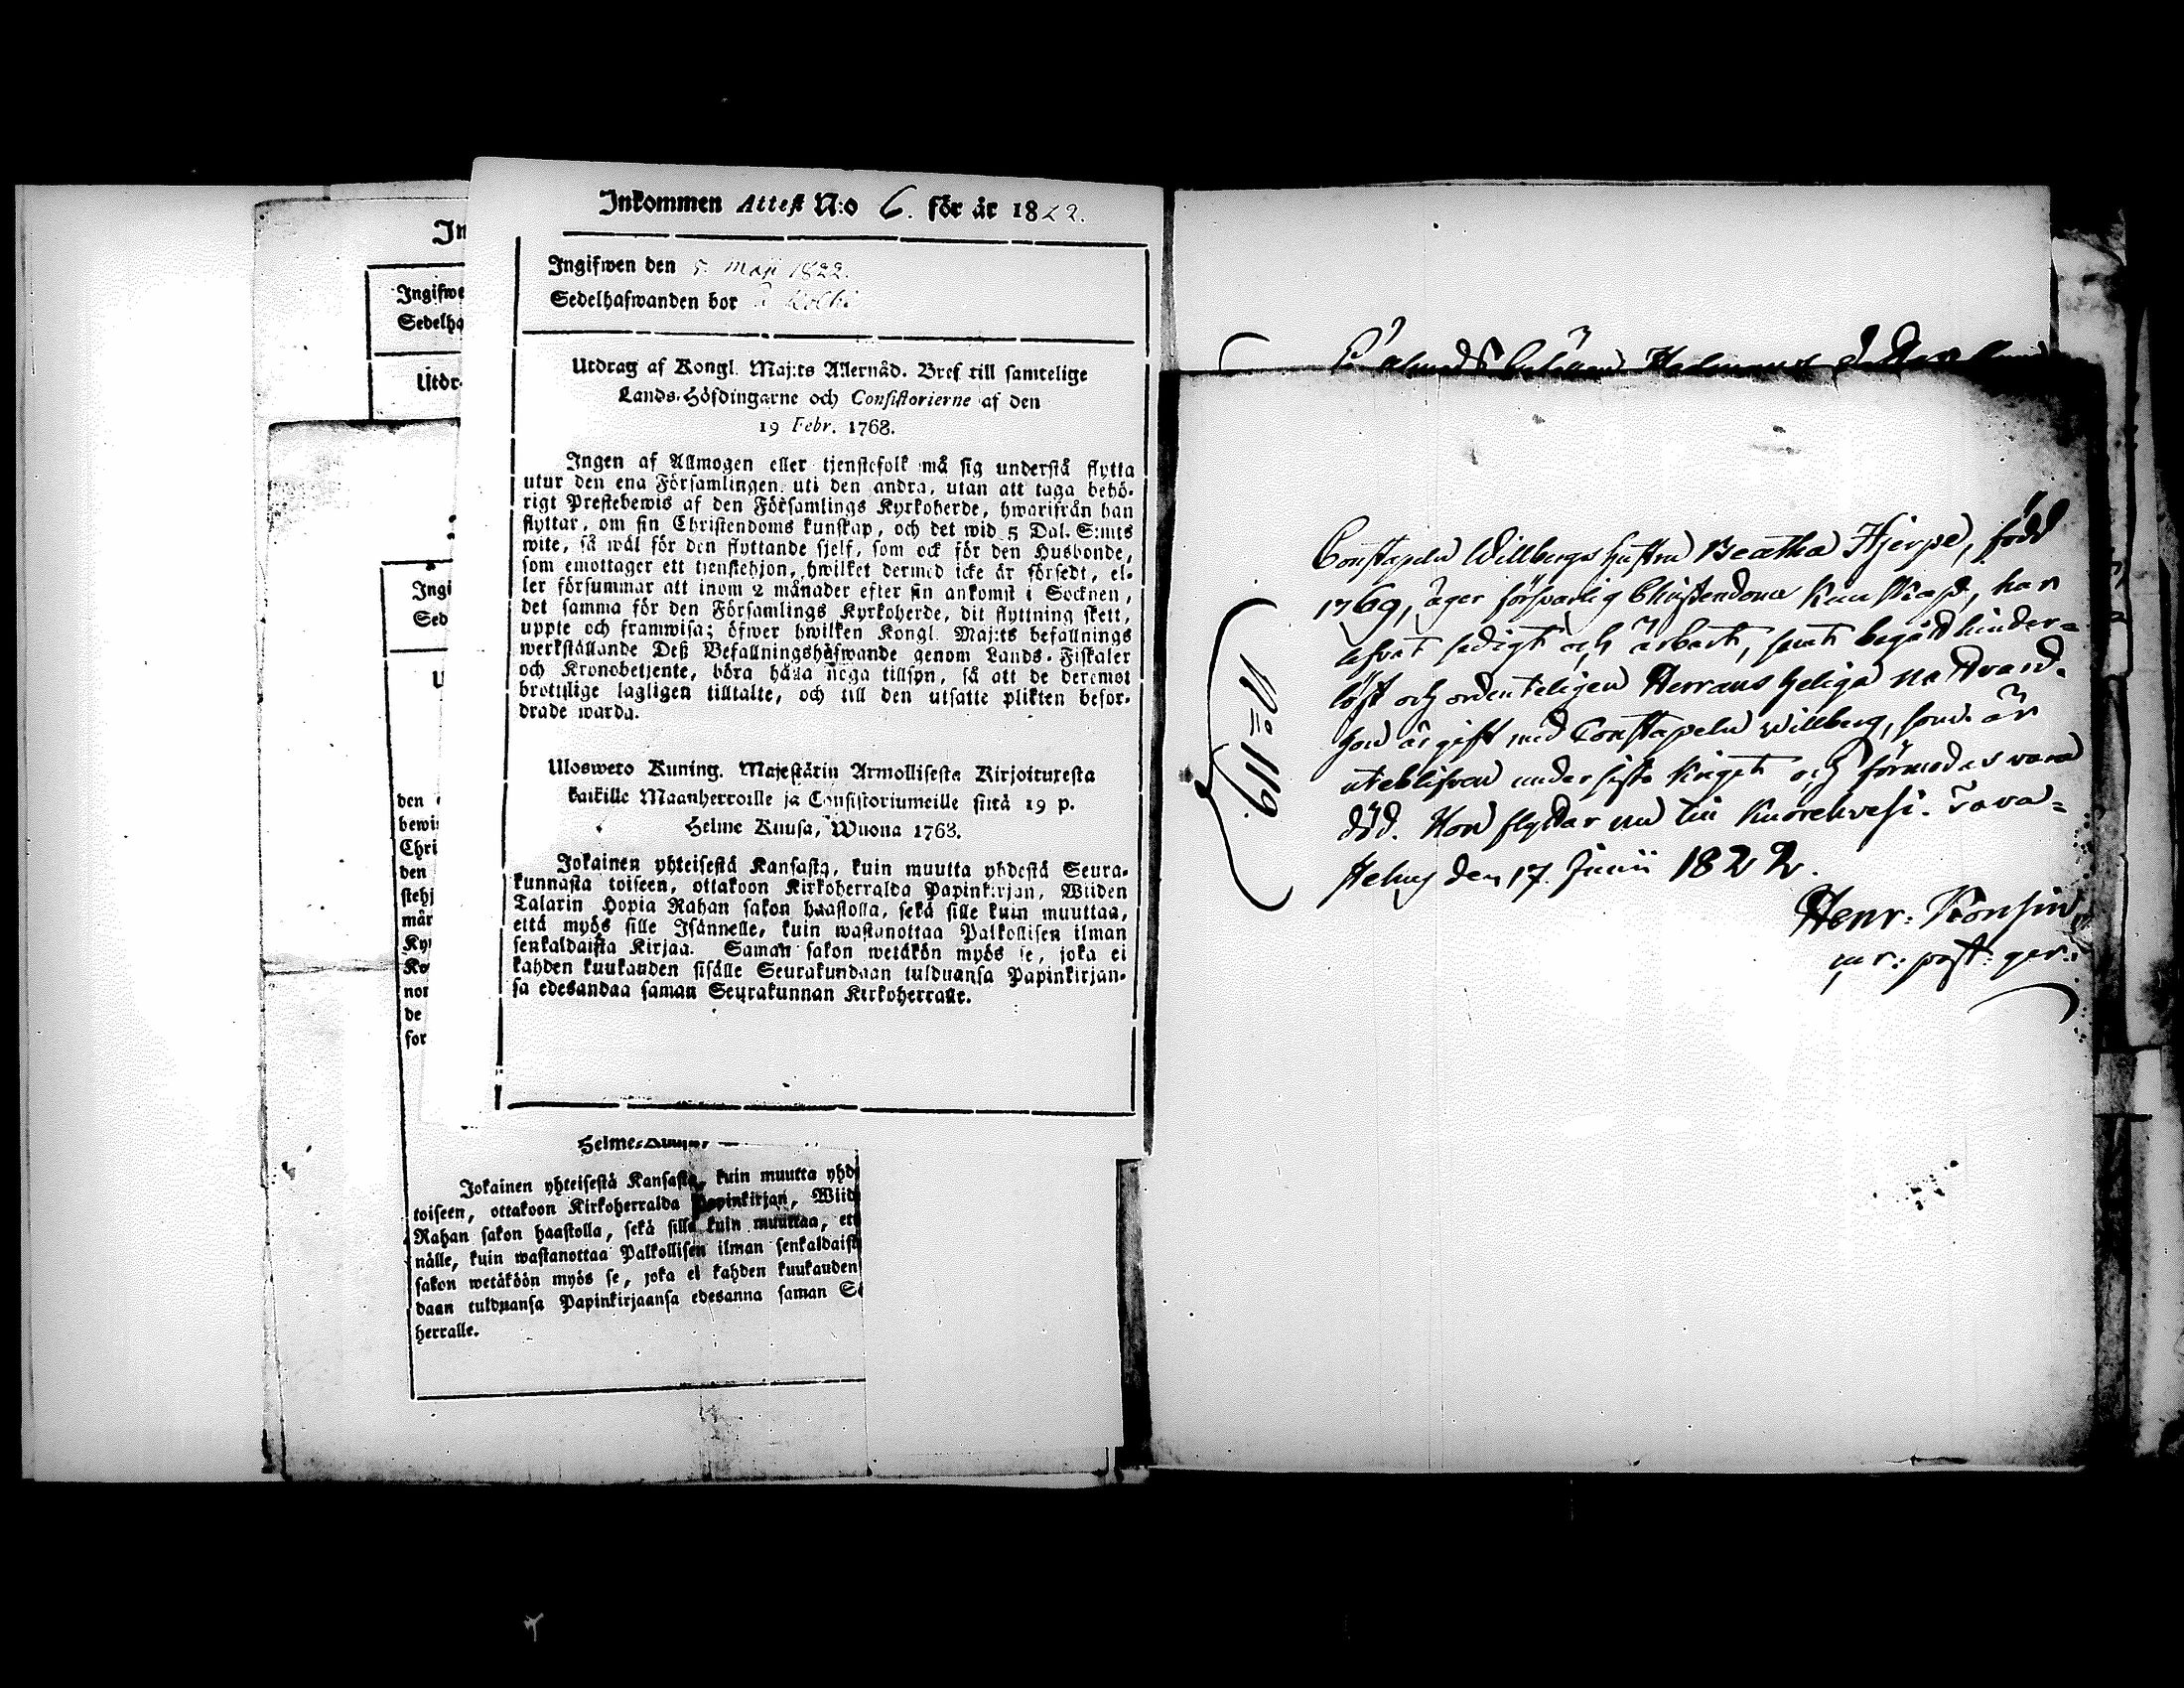 In
Ingifwe
Sedelha
Utdr
Ingi
Sed
U
den
bewi
Chri
den
stehj
mån
Ky
Ko
nor
de
for
Inkommen Attest N:o 6. för år 1822.
Ingifwen den 5. Maji 1822.
Sedelhafwanden bor
Utdrag af Kongl. Maj:ts Allernåd. Bref till samtelige
Lands-Höfdingarne och Consistorierne af den
19 Febr. 1768.
Ingen af Allmogen eller tjenstefolk må sig understå flytta
utur den ena Församlingen uti den andra, utan att taga behö-
rigt Prestebewis af den Församlings Kyrkoherde, hwarifrån han
flyttar, om sin Christendoms kunskap, och det wid 5 Dal. S:mts
wite, så wäl för den flyttande sjelf, som ock för den Husbonde,
som emottager ett tjenstehjon, hwilket dermed icke är försedt, el-
ler försummar att inom 2 månader efter sin ankomst i Socknen,
det samma för den Församlings Kyrkoherde, dit flyttning skett,
uppte och framwisa; öfwer hwilken Kongl. Maj:ts befallnings
werkställande Deß Befallningshafwande genom Lands-Fiskaler
och Kronobetjente, böra hålla noga tillsyn, så att de deremot
brottslige lagligen tilltalte, och till den utsatte plikten befor-
drade warda.
Uloswero Kuning. Majestärin Armollisesta Kirjoituxesta
kaikille Maanherroille ja Consistoriumeille siitä 19 p.
Helme Kuusa, Wuona 1763.
Jokainen yhteisestä Kansasta, kuin muutta yhdestä Seura-
kunnasta toiseen, ottakoon Kirkoherralda Papinkirjan, Wiiden
Talarin Hopia Rahan sakon haastolla, sekä sille kuin muuttaa,
että myös sille Isännelle, kuin wastanottaa Palkollisen ilman
senkaldaista Kirjaa. Saman sakon wetäkön myös se, joka ei
kahden kuukauden sisälle Seurakundaan tulduansa Papinkirjan-
sa edesandaa saman Seurakunnan Kirkoherralle.
Helme
Jokainen yhteisestä Kansasta, kuin muutta yhd
toiseen, ottakoon Kirkoherralda Papinkirjan, Wiid
Rahan sakon haastolla, sekä sille kuin muuttaa, ett
nälle, kuin wastanottaa Palkollisen ilman senkaldaist
sakon wetäköön myös se, joka ei kahden kuukauden
daan tulduansa Papinkirjaansa edesanna saman Se
herralle.
N:o 119.
Constapeln Willbergs hustru Beatha Hjerpe, född
1769, äger försvarlig Christendoms Kunskap, har
lefvat sedigt och ärbart, samt begådt hinder=
löst och ordenteligen Herrans heliga Nattvard.
Hon är gift med Constapeln Willberg, som är
utebliven under sista kriget och förmodas vara
död. Hon flyttar nu till Kuorehvesi. Tava=
stehus den 17. Junii 1822.
Henr: